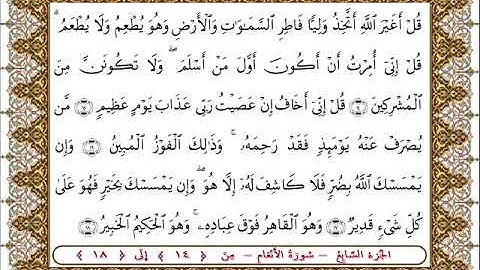 قُلْ أَغَيْرَ ٱللَّهِ أَتَّخِذُ وَلِيًّا فَاطِرِ ٱلسَّمَـٰوَٰتِ وَٱلْأَرْضِ وَهُوَ يُطْعِمُ وَلَا يُطْعَمُ ۗ
قُلْ إِنِّىٓ أُمِرْتُ أَنْ أَكُونَ أَوَّلَ مَنْ أَسْلَمَ ۖ وَلَا تَكُونَنَّ مِنَ
ٱلْمُشْرِكِينَ ﴿١٤﴾ قُلْ إِنِّىٓ أَخَافُ إِنْ عَصَيْتُ رَبِّى عَذَابَ يَوْمٍ عَظِيمٍ ﴿١٥﴾ مَّن
يُصْرَفْ عَنْهُ يَوْمَئِذٍ فَقَدْ رَحِمَهُۥ ۚ وَذَٰلِكَ ٱلْفَوْزُ ٱلْمُبِينُ ﴿١٦﴾ وَإِن
يَمْسَسْكَ ٱللَّهُ بِضُرٍّ فَلَا كَاشِفَ لَهُۥٓ إِلَّا هُوَ ۖ وَإِن يَمْسَسْكَ بِخَيْرٍ فَهُوَ عَلَىٰ
كُلِّ شَىْءٍ قَدِيرٌ ﴿١٧﴾ وَهُوَ ٱلْقَاهِرُ فَوْقَ عِبَادِهِۦ ۚ وَهُوَ ٱلْحَكِيمُ ٱلْخَبِيرُ ﴿١٨﴾
الجزء السابع - سورة الأنعام - من ﴿ ١٤ ﴾ إلى ﴿ ١٨ ﴾